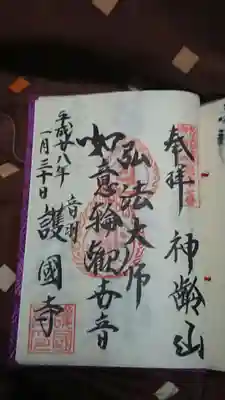 奉拝 神齢山
弘法大師
如意輪観世音
音羽 護國寺
平成廿八年
一月三十日